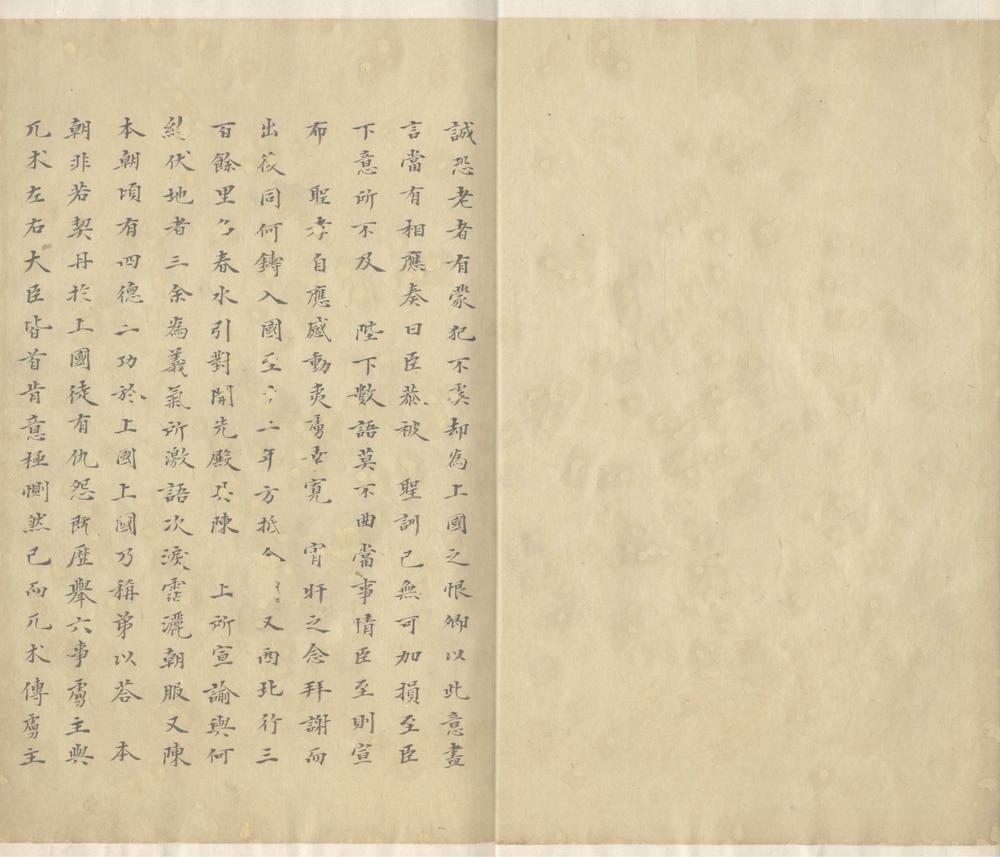 誠恐老者有蒙犯不虞却為上國之恨卿以此意盡
言當有相應奏曰臣恭被　聖訓已無可加損至臣
下意所不及　陛下數語莫不曲當事情臣至則宣
布　聖孝自應感動夷虜幸寬　宵旰之念拜謝而
出後同何鑄入國至十二年方抵又西北行三
百餘里春水引對開先殿具陳　上所宣諭與何
伏地者三余為義氣所激語次淚霑灑朝服又陳
本朝頃有四德二功於上國上國乃稱弟以荅　本
朝非若契丹於上國徒有仇怨既歷舉六事虜主與
兀朮左右大臣皆首肯意極惻然已而兀朮傳虜主